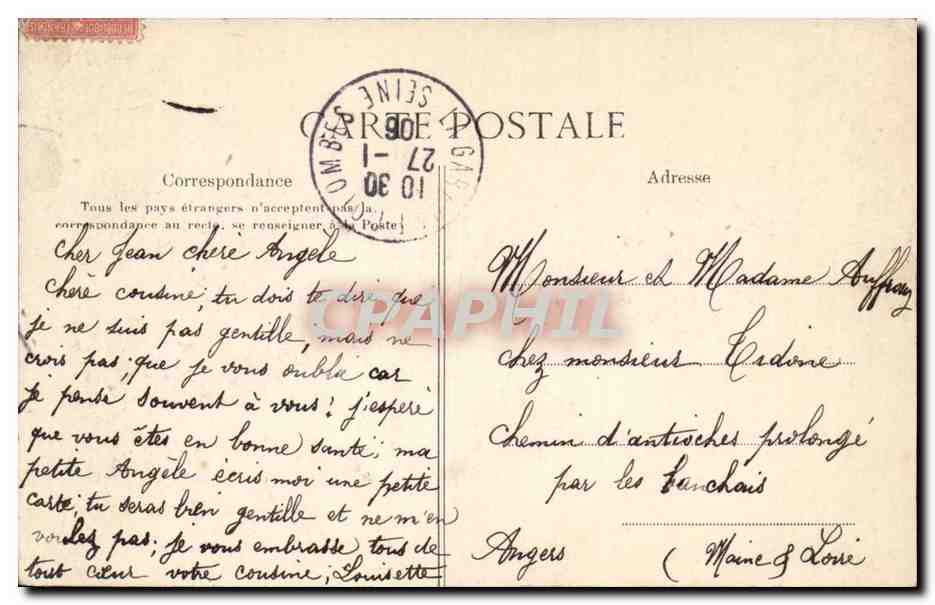 CARTE POSTALE
LA GAR
COLOMBES SEINE
10 30
27 -1
06
Correspondance
Tous les pays étrangers n'acceptent pas la
correspondance au recto, se renseigner à la Poste
cher Jean chère Angèle
chère cousine, tu dois te dire que
je ne suis pas gentille, mais ne
crois pas, que je vous oublia car
je pense souvent à vous! j'espère
que vous êtes en bonne santé; ma
petite Angèle écris moi une petite
carte, tu seras bien gentille et ne m'en
voulez pas; je vous embrasse tous de
tout cœur votre cousine, Louisette
Adresse
Monsieur et Madame Auffray
chez monsieur Tidone
chemin d'antioches prolongé
par les banchais
Angers (Maine & Loire
CPAPHIL